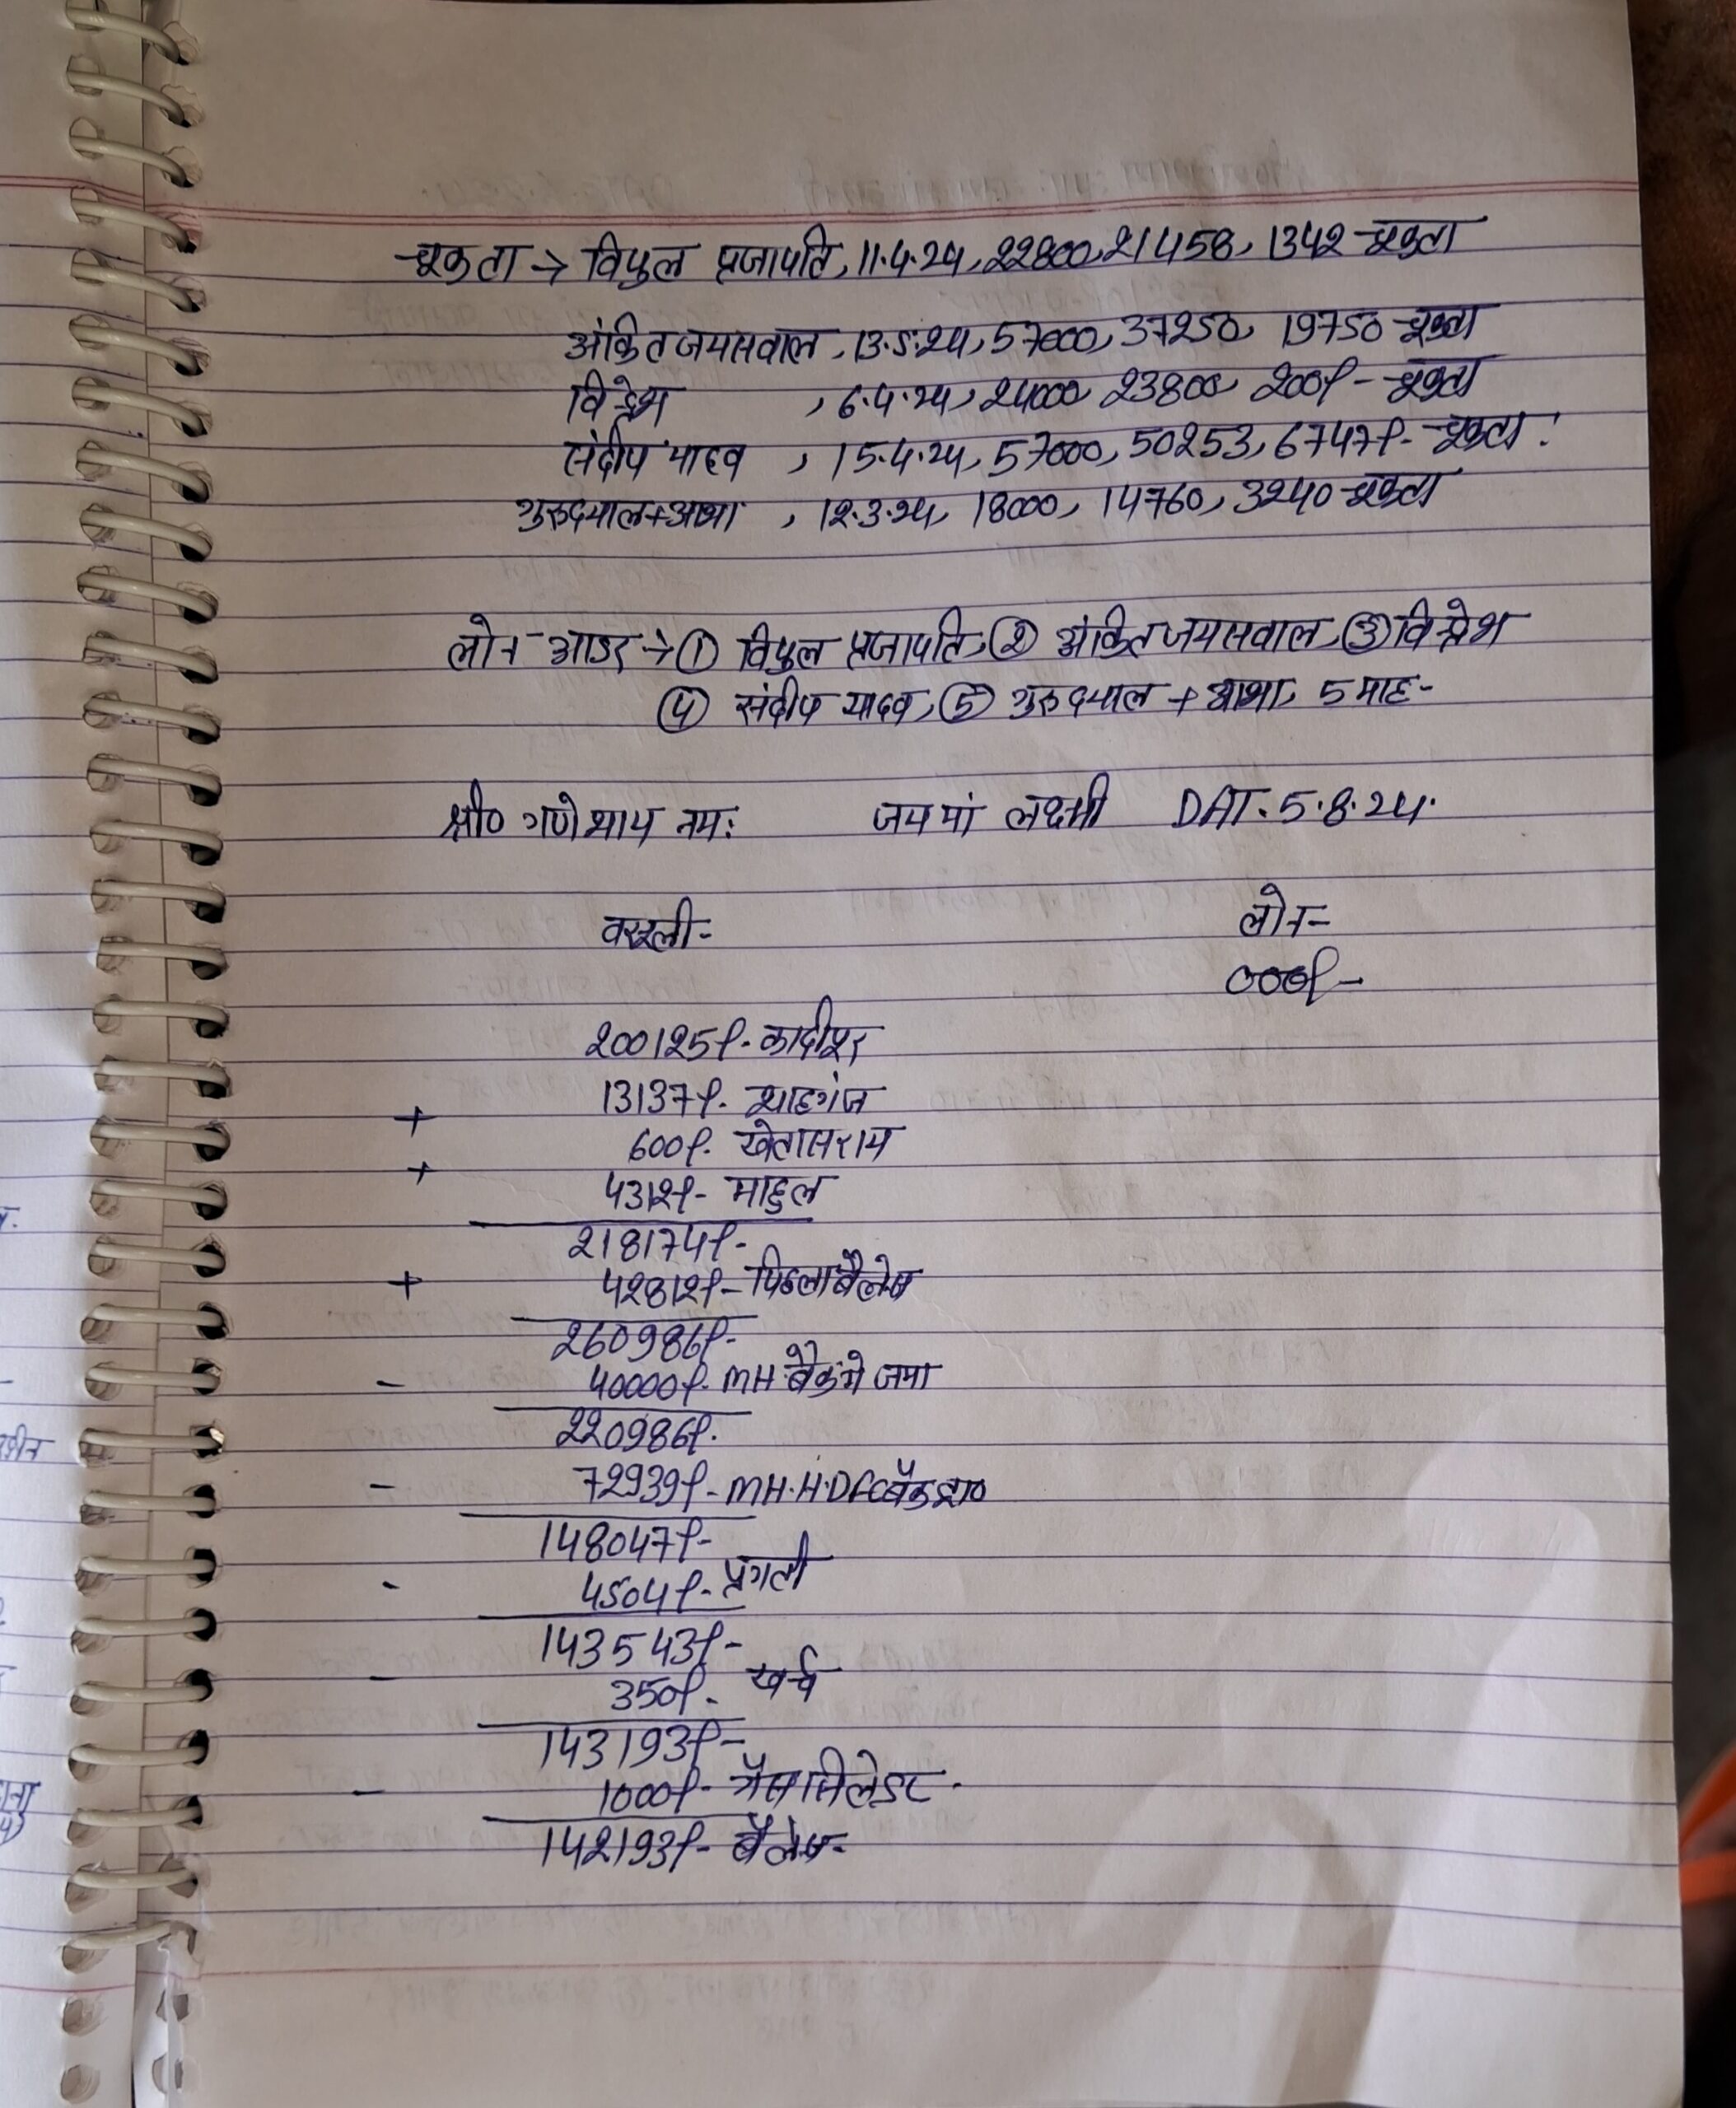 चूकता → विपुल प्रजापति, 11.4.24, 22800, 21458, 1342 चूकता
अंकित जयसवाल, 13.5.24, 57000, 37250, 19750 चूकता
विन्द्रेश , 6.4.24, 24000, 23800, 200/- चूकता
संदीप यादव , 15.4.24, 57000, 50253, 6747/- चूकता.
गुरुदयाल+आभा , 12.3.24, 18000, 14760, 3240 चूकता
लोन आडर → ① विपुल प्रजापति, ② अंकित जयसवाल, ③ विन्द्रेश
④ संदीप यादव, ⑤ गुरुदयाल + आभा, 5 माह-
श्री० गणेशाय नमः जय मां लक्ष्मी DAT. 5.8.24.
वसूली- लोन=
000/-
200125/- कादीपुर
+ 13137/- शाहगंज
600/- खेतासराय
+ 4312/- माहुल
218174/-
+ 42812/- पिछला बैलेंस
260986/-
- 40000/- MH. बैंक में जमा
220986/-
- 72939/- MH.H.DFC बैंक
148047/-
- 4504/- प्रगती
143543/-
- 350/- खर्च
143193/-
- 1000/- गैस सिलेडर.
142193/- बैलेंस-